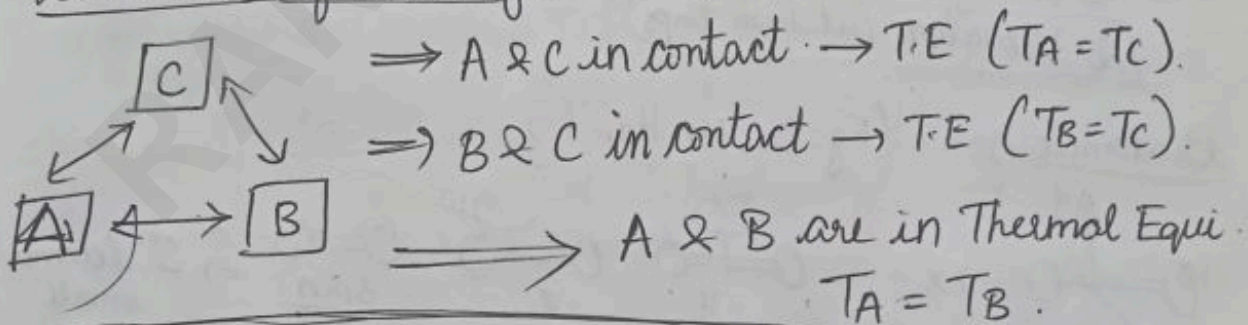 C
⟹ A & C in contact. → T.E (TA = TC).
⟹ B & C in contact → T.E (TB = TC).
A
B
⟹ A & B are in Thermal Equi.
TA = TB.